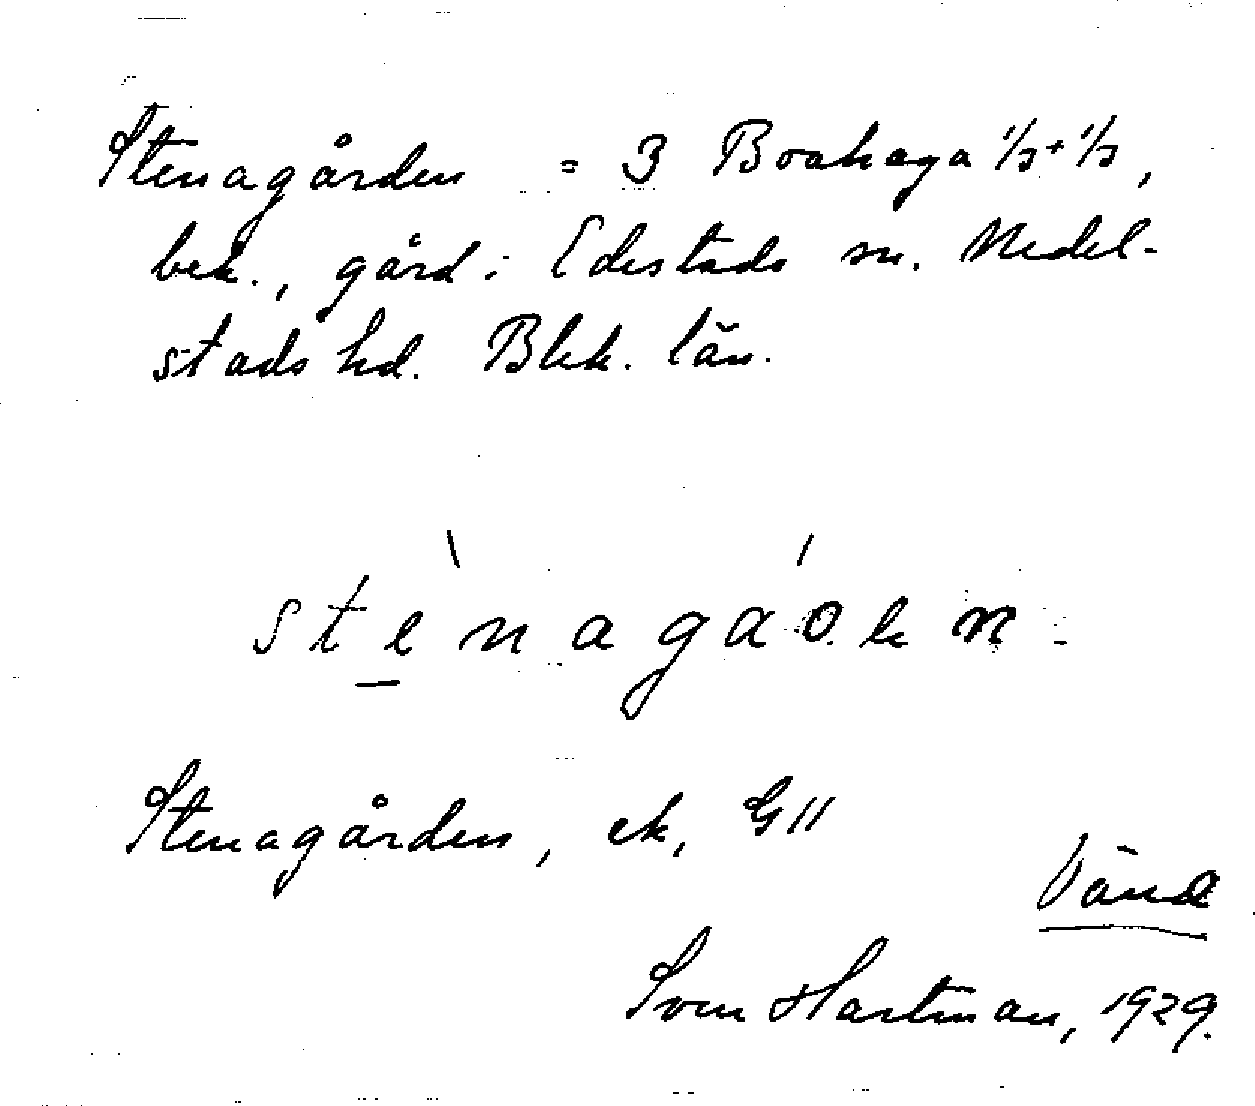 Stenagården = 3 Boahaga 1/3 + 1/3,
bek., gård i Edestads sn. Medel-
stads hd. Blek. län.
stènagáo.en
Stenagården, ek, G11
Vänd
Sven Hartman, 1929.